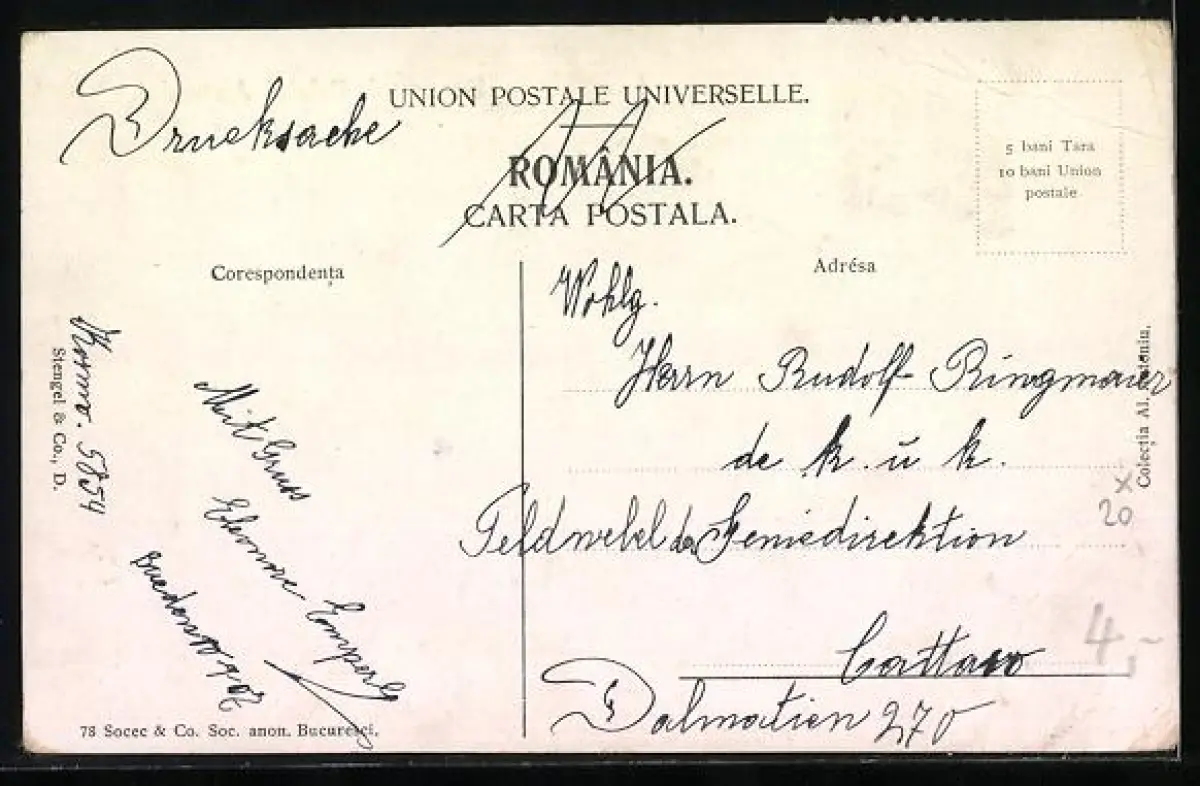 Drucksache
UNION POSTALE UNIVERSELLE.
ROMÂNIA.
CARTA POSTALA.
5 bani Tara
10 bani Union
postale
Corespondența
Adrésa
Wohlg.
Herrn Rudolf Ringmaier
de k. u k.
Feldwebel der Geniedirektion
Cattaro
Dalmatien 270
Mit Gruss
Stengel & Co., D.
Colecția Al.
x
20
4,-
78 Socec & Co. Soc. anon. Bucuresci.